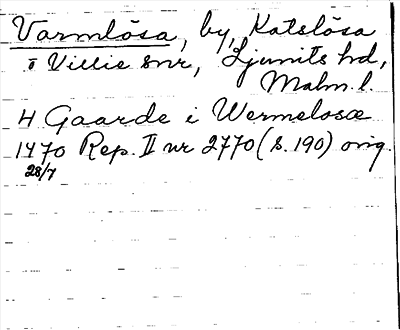 Varmlösa, by, Katslösa
i Villie snr, Ljunits hd,
Malm. l.
4 Gaarde i Wermelosæ
1470 Rep. II nr 2770 (s. 190) orig.
28/7